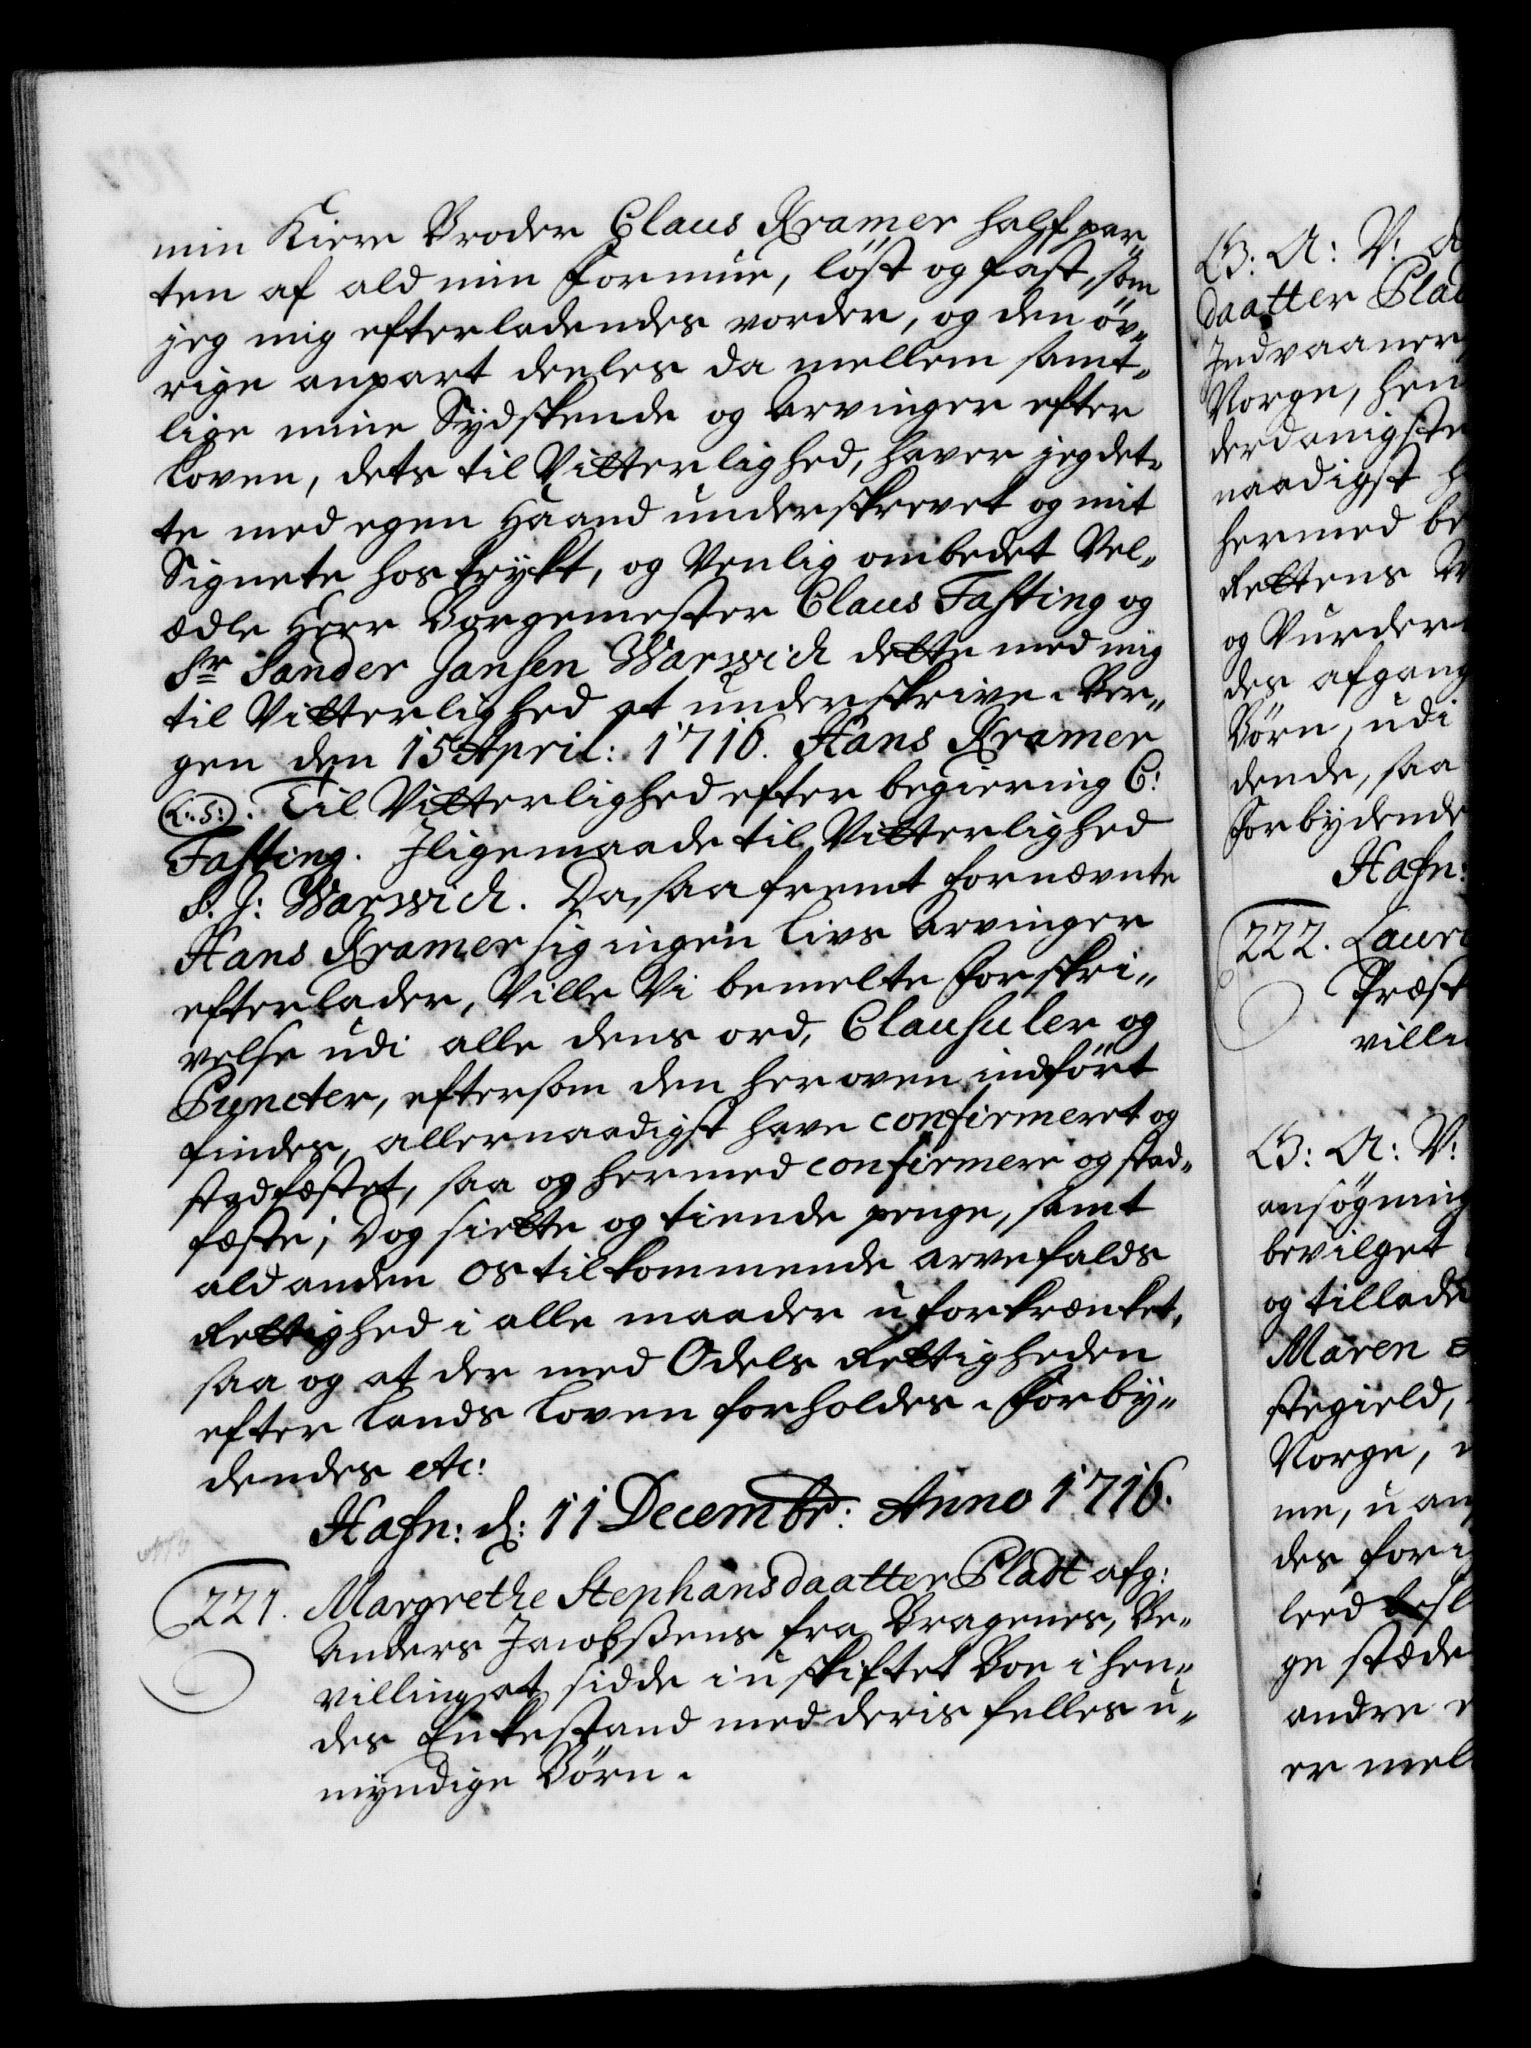 min Kiere Broder Claus Kramer half par„
ten af ald min Formue, löst og fast, som
jeg mig efterladendes vorder, og den öv„
rige anpart deeles da mellem samt„
lige mine Sydskende og Arvinger efter
Loven, dets til Vitterlighed, haver jeg det„
te med egen Haand underskrevet og mit
Signete hostrykt, og Venlig ombedet Vel„
ædle Herr Borgemester Claus Fasting og
Sr Sander Jansen Warwich dette med mig
til Vitterlighed at underskrive. Ber„
gen den 15 April: 1716. Hans Kramer
(L:S:). Til Vitterlighed efter begiering C:
Fasting. Iligemaade til Vitterlighed
S. J: Warwich. Da, saafremt fornævnte
Hans Kramer sig ingen Livs Arvinger
efterlader, Ville Vi bemelte Forskri„
velse udi alle dens ord, Clausuler og
Puncter, eftersom den her oven indfört
findes, allernaadigst have confirmeret og
stadfæstet, saa og hermed confirmere og stad„
fæste; Dog siette og tiende penge, samt
ald anden Os tilkommende arvefalds
Rettighed i alle maader uforkrænket,
saa og at der med Odels Rettigheden
efter Lands Loven forholdes. Forby„
dendes etc:
Hafn: d: 11 Decembr: Anno 1716.
221. Margrethe Stephansdaatter Pladt afg:
Anders Jacobssens fra Bragenes, Be„
villing at sidde i uskiftet Boe i hen„
des Enkestand med deris felles u„
myndige Börn.
G: A: V:
daatter Plad
Indvaaner
Norge, hen
derdanigste
naadigst
hermed be
Rettens
og Vurder
des afgang
Börn, udi
dende, saa
Forbydende
Hafn:
222. Laur
Præst
villi
G: A: V:
ansögning
bevilget
og tillade
Maren
stegield,
Norge,
me, u
des for
leed
ge stæde
andre
er mel